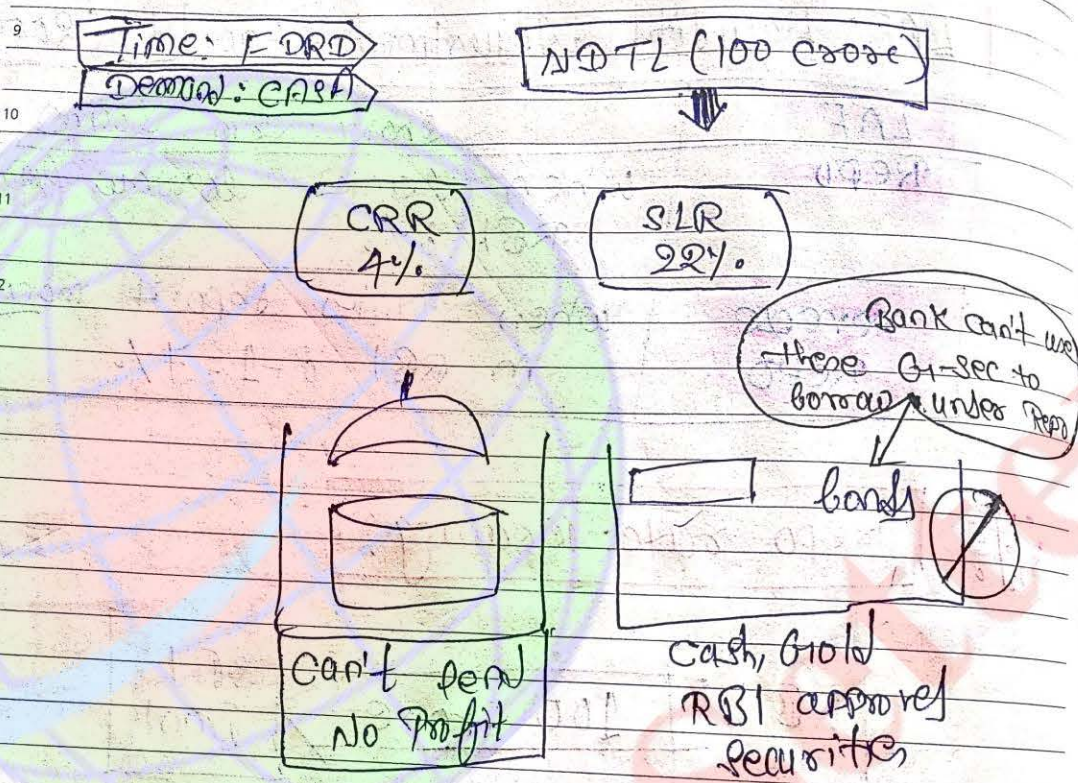 9
Time: FDRD
NDTL (100 Crore)
Demand: CASA
10
11
CRR
4%.
SLR
22%.
Bank can't use
these G-sec to
borrow under Repo
bonds
Can't lend
No Profit
Cash, Gold
RBI approved
securities